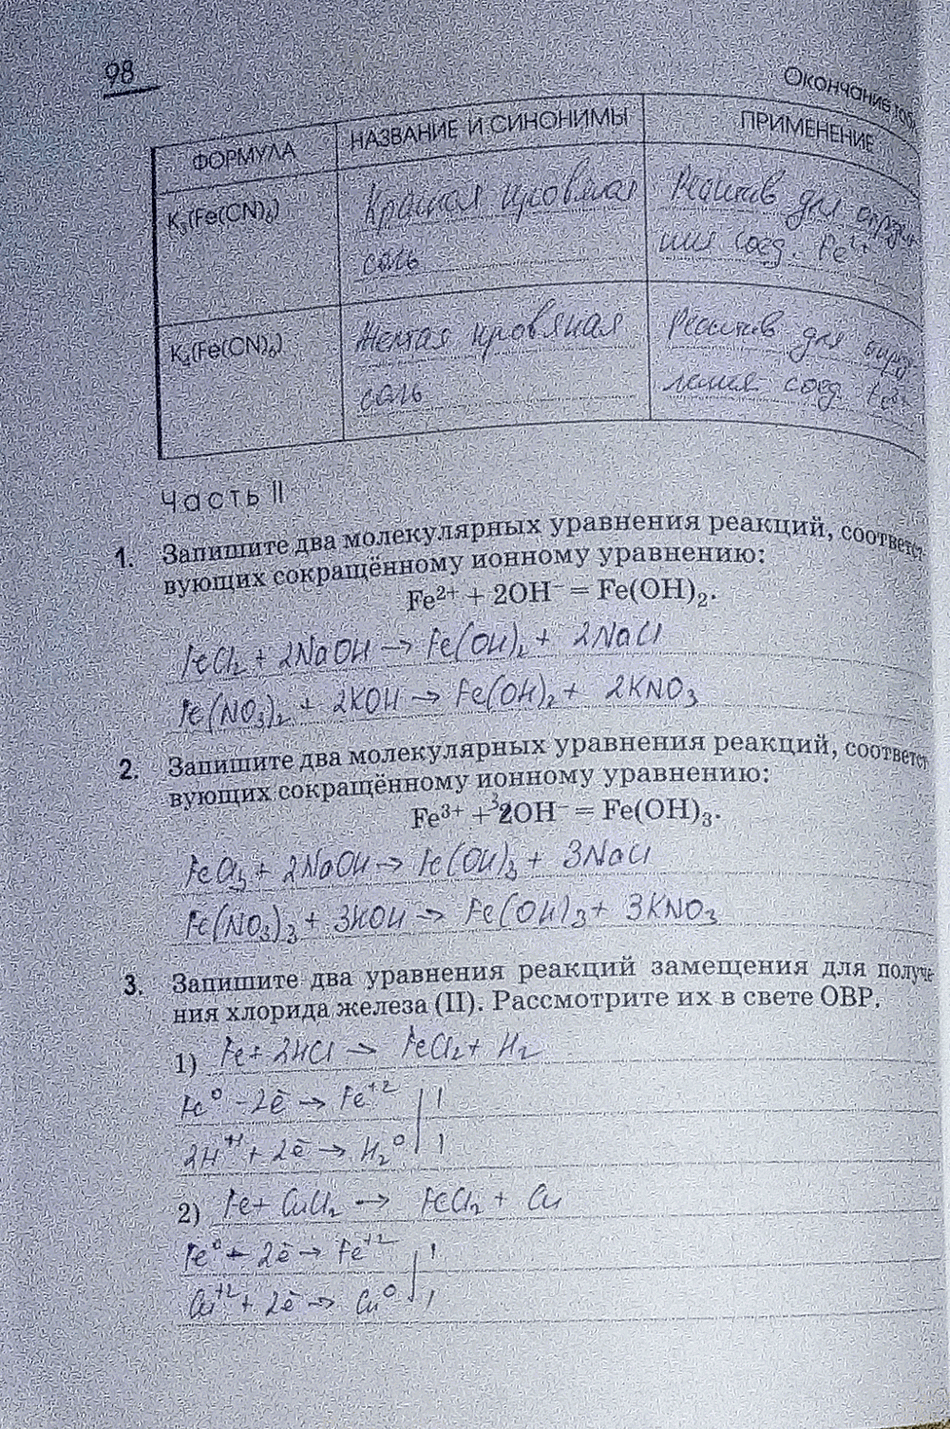 98
Окончание
ФОРМУЛА
НАЗВАНИЕ И СИНОНИМЫ
ПРИМЕНЕНИЕ
K₃(Fe(CN)₆)
Красная кровяная
соль
Реактив для
соед. Fe²⁺
K₄(Fe(CN)₆)
Желтая кровяная
соль
Реактив для
соед. Fe³⁺
Часть II
1. Запишите два молекулярных уравнения реакций, соответст-
вующих сокращённому ионному уравнению:
Fe²⁺ + 2OH⁻ = Fe(OH)₂.
FeCl₂ + 2NaOH → Fe(OH)₂ + 2NaCl
Fe(NO₃)₂ + 2KOH → Fe(OH)₂ + 2KNO₃
2. Запишите два молекулярных уравнения реакций, соответст-
вующих сокращённому ионному уравнению:
Fe³⁺ + ³2OH⁻ = Fe(OH)₃.
FeCl₃ + 2NaOH → Fe(OH)₃ + 3NaCl
Fe(NO₃)₃ + 3KOH → Fe(OH)₃ + 3KNO₃
3. Запишите два уравнения реакций замещения для получе-
ния хлорида железа (II). Рассмотрите их в свете ОВР.
1) Fe + 2HCl → FeCl₂ + H₂
Fe⁰ - 2ē → Fe⁺² | 1
2H⁺¹ + 2ē → H₂⁰ | 1
2) Fe + CuCl₂ → FeCl₂ + Cu
Fe⁰ - 2ē → Fe⁺² | 1
Cu⁺² + 2ē → Cu⁰ | 1